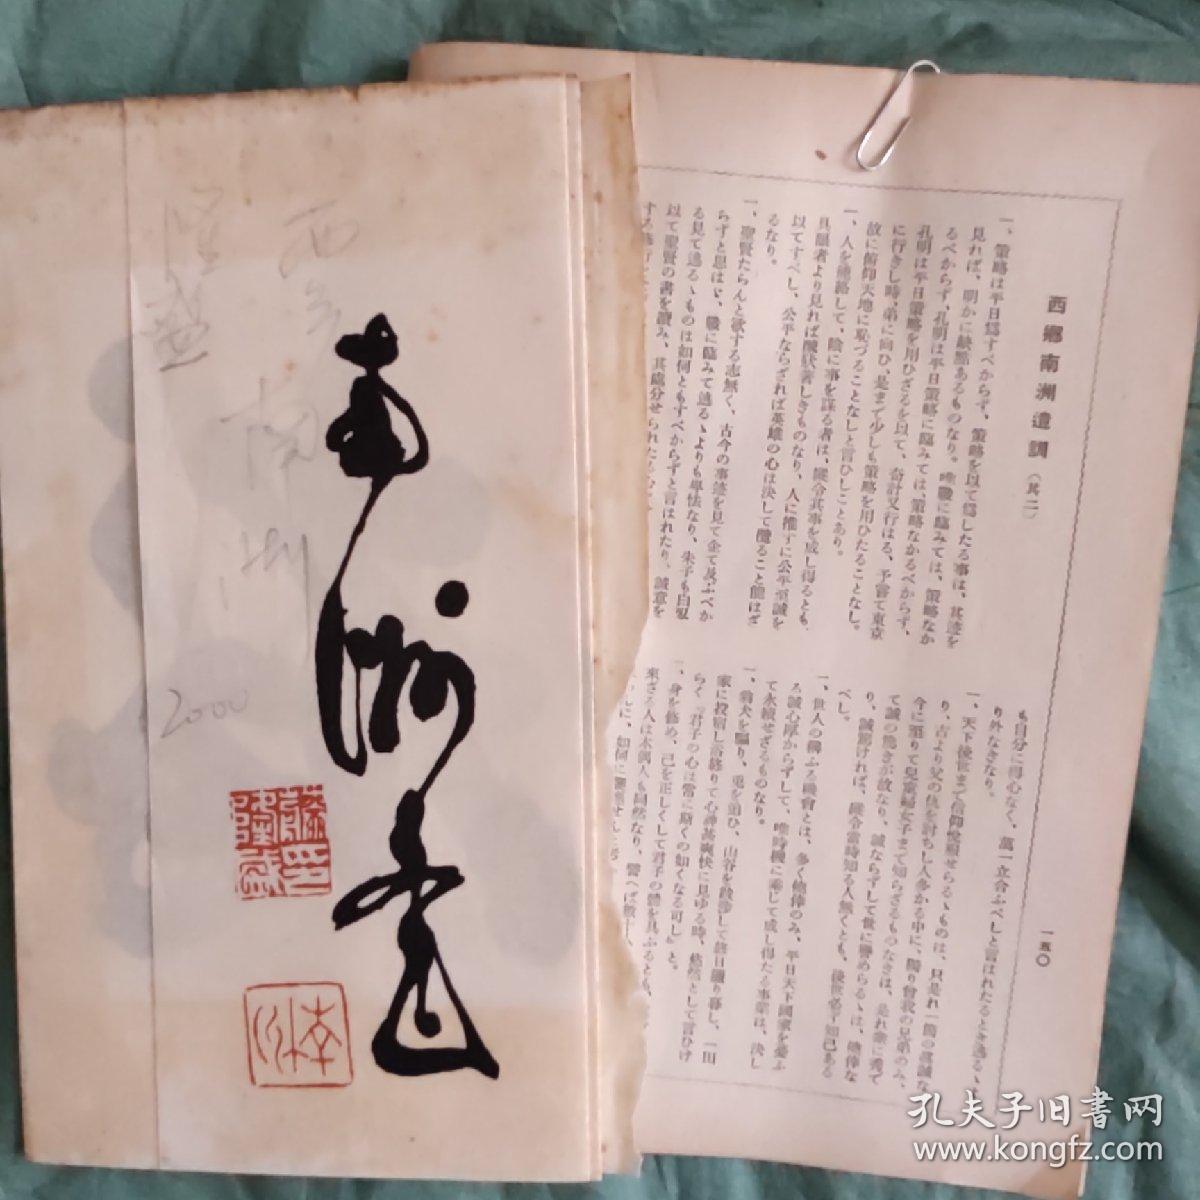 西鄉南洲遺訓（其二）
一、策略は平日爲すべからず、策略を以て爲したる事は、其迹を
見れば、明かに缺點あるものなり。唯戰に臨みては、策略なか
るべからず、孔明は平日策略に臨みては、策略なかるべからず、
孔明は平日策略を用ひざるを以て、奇計又行はる、予嘗て東京
に行きし時、弟に向ひ、是まで少しも策略を用ひたることなし。
故に俯仰天地に恥づることなしと言ひしことあり。
一、人を籠絡して、陰に事を謀る者は、縱令其事を成し得るとも、
具眼者より見れば醜狀著しきものなり、人に推すに公平至誠を
以てすべし、公平ならざれば英雄の心は決して攬ること能はざ
るなり。
一、聖賢たらんと欲する志無く、古今の事迹を見て企て及ぶべか
らずと思はゞ、戰に臨みて逃るゝよりも卑怯なり、朱子も白刃
る見て逃るゝものは如何ともすべからずと言はれたり、誠意を
以て聖賢の書を讀み、其處分せられたる
も自分に得心なく、萬一立合ふべしと言はれたるとき逃るゝよ
り外なきなり。
一、天下後世まで信仰悅服せらるゝものは、只是れ一箇の眞誠な
り、古より父の仇を討ちし人多かる中に、獨り曾我の兄弟のみ、
今に至りて兒童婦女子まで知らざるものなきは、是れ衆に秀て
て誠の篤きが故なり、誠ならずして世に譽めらるゝは、僥倖な
り、誠篤ければ、縱令當時知る人無くとも、後世必ず知己ある
べし。
一、世人の稱ふる機會とは、多く僥倖のみ、平日天下國家を憂ふ
る誠心厚からずして、唯時機に乘じて成し得たる事業は、決し
て永續せざるものなり。
一、翁犬を驅り、兎を追ひ、山谷を跋涉して終日獵り暮し、一田
家に投宿し浴終りて心神甚爽快に見ゆる時、悠然として言ひけ
らく『君子の心は常に斯くの如くなる可し』と。
一、身を修め、己を正しくして君子の體を具ふるとも、
來ざる人は木偶人も同然なり、譬へば數十
一五〇
西乡
南洲
隆盛
2000
南洲書
藤印隆盛
南洲
孔夫子旧書网
www.kongfz.com